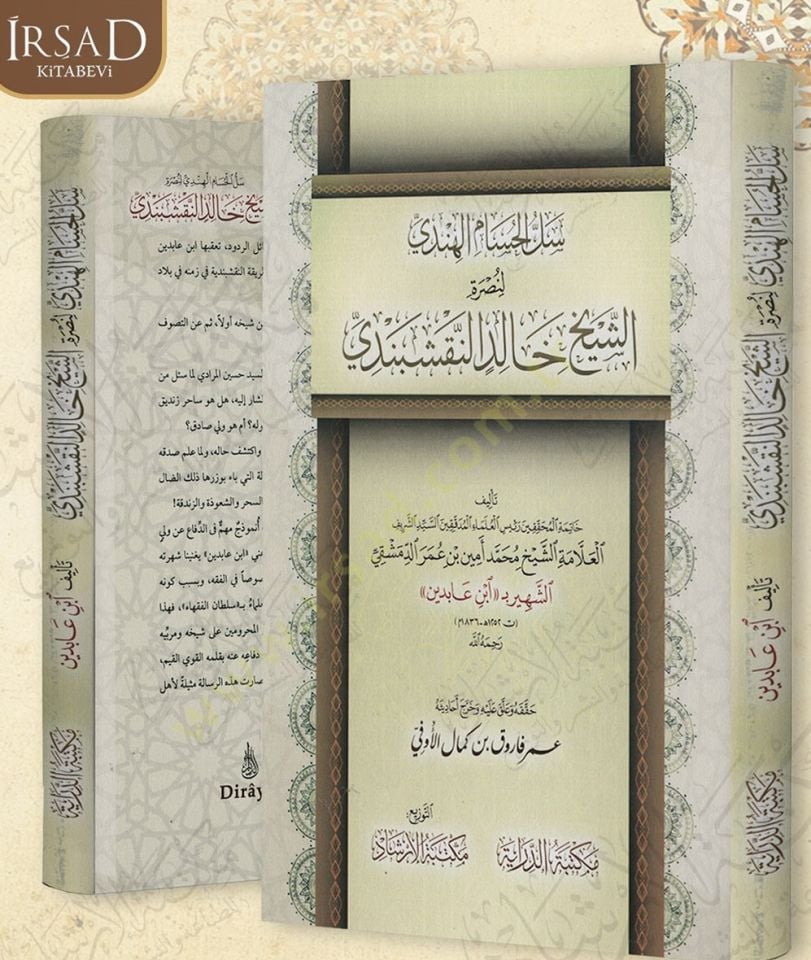 İRŞAD
KİTABEVİ
سَلُّ الحُسَامِ الهِنْدِيِّ لِنُصْرَةِ الشَّيْخِ خَالِدٍ النَّقْشَبَنْدِيِّ
تَأليف ابْنِ عَابدين
مكتبة الدراية
سَلُّ الحُسَامِ الهِنْدِيِّ لِنُصْرَةِ
خَالِدٍ النَّقْشَبَنْدِيِّ
الردود، تعقبها ابن عابدين
النقشبندية في زمنه في بلاد
شيخه أولًا، ثم عن التصوف
لسيد حسين المرادي لما سئل من
إليه، هل هو ساحر زنديق
أم هو ولي صادق؟
واكتشف حاله، ولما علم صدقه
التي باء بوزرها ذلك الضال
السحر والشعوذة والزندقة!
أنموذجٌ مهمٌّ في الدِّفاع عن وليٍّ
«ابن عابدين» يغنينا شهرته
في الفقه، وبسبب كونه
بـ«سلطان الفقهاء»، فهذا
المحرومين على شيخه ومربِّيه
دفاعِه عنه بقلمه القوي القيم،
صارت هذه الرسالة مثيلة لأهل
Diray
سَلُّ الحُسَامِ الهِنْدِيِّ
لِنُصْرَةِ
الشَّيْخِ خَالِدٍ النَّقْشَبَنْدِيِّ
تَأليف
خَاتِمَةِ المُحَقِّقِينَ رَئِيسِ العُلَمَاءِ المُدَقِّقِينَ السَّيِّدِ الشَّرِيفِ
العَلَّامَةِ الشَّيْخِ مُحَمَّد أَمِين بْنِ عُمَرَ الدِّمَشْقِيِّ
الشَّهِيرِ بـ «ابْنِ عَابدين»
(ت ١٢٥٢هـ - ١٨٣٦م)
رَحِمَهُ اللَّه
حَقَّقَهُ وَعَلَّقَ عَلَيْهِ وَخَرَّجَ أَحَادِيثَهُ
عمر فاروق بن كمال الأوفي
التوزيع:
مكتبة الدراية
مكتبة الارشاد
سَلُّ الحُسَامِ الهِنْدِيِّ لِنُصْرَةِ الشَّيْخِ خَالِدٍ النَّقْشَبَنْدِيِّ
تَأليف ابْنِ عَابدين
مكتبة الدراية